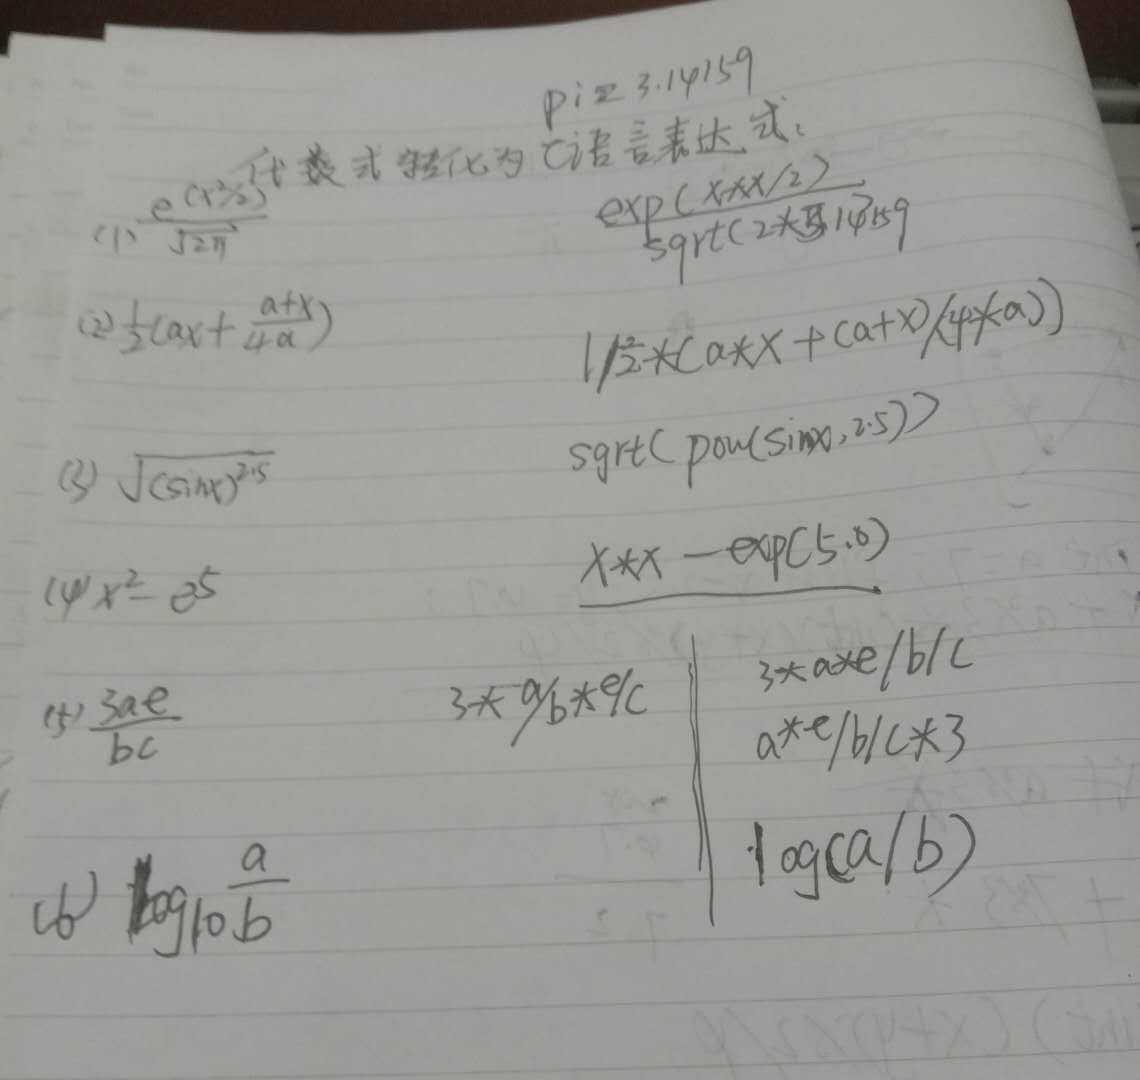 pi=3.14159
代数式转化为C语言表达式:
(1) e(x²/2) / √2π
exp(x*x/2) / sqrt(2*3.14159
(2) 1/2(ax + a+x/4a)
1/2*(a*x+(a+x)/(4*a))
(3) √(sinx)^2.5
sqrt(pow(sinx,2.5))
(4) x²-e⁵
x*x-exp(5.0)
(5) 3ae/bc
3*a/b*e/c
3*a*e/b/c
a*e/b/c*3
(6) log10 a/b
log(a/b)